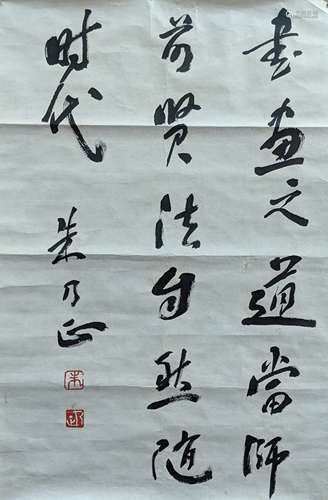 书画之道當师
前贤法自然随
时代
朱乃正